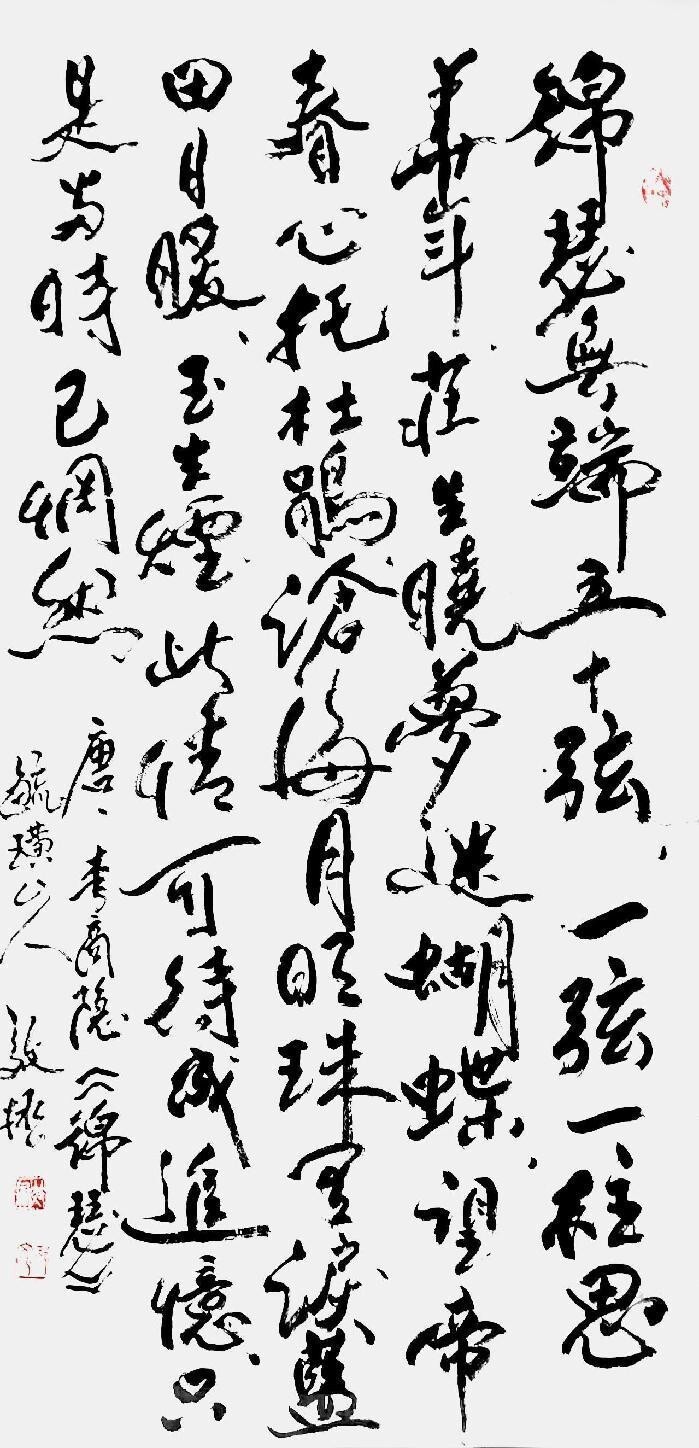 錦瑟無端五十弦、一弦一柱思
華年莊生曉夢迷蝴蝶、望帝
春心托杜鵑滄海月明珠有淚藍
田日暖、玉生煙此情可待成追憶、只
是當時已惘然
唐、李商隱《錦瑟》
毓璜山人